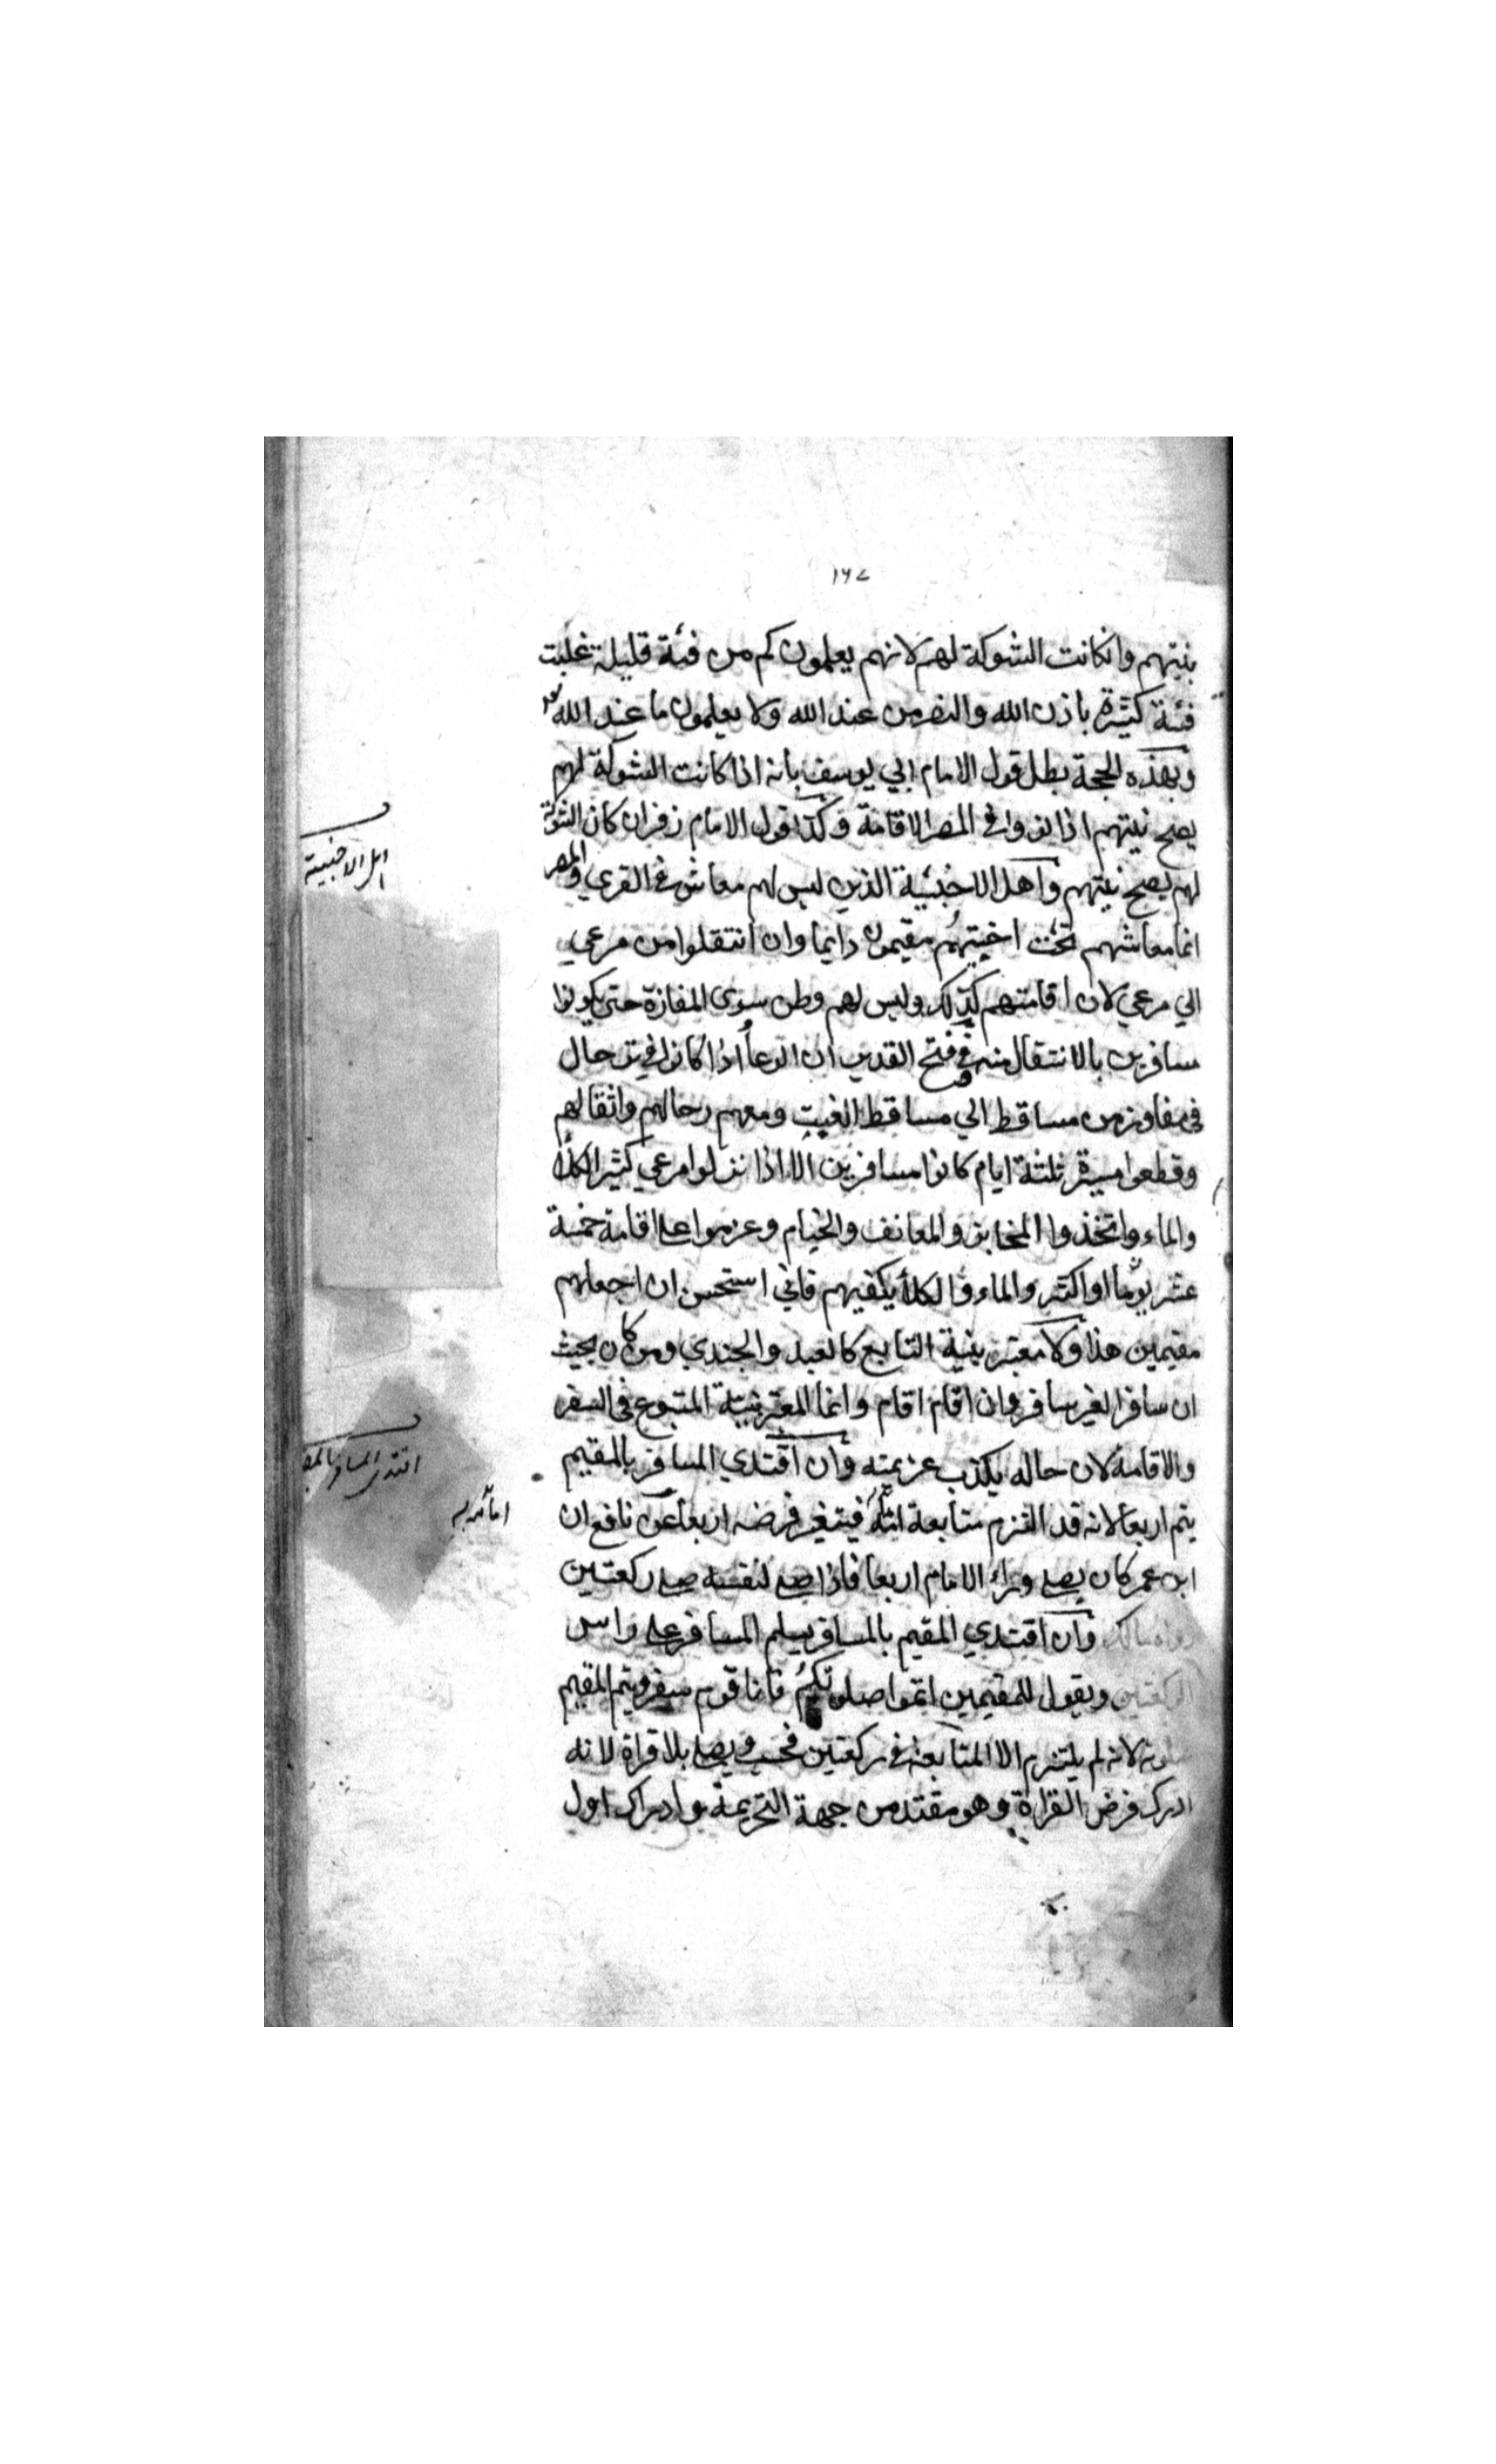 ١٦٧
بنيتهم وانكانت الشوكة لهم لانهم يعلمون كم من فئة قليلة غلبت
فئة كثيرة باذن الله والنصر من عند الله ولا يعلمون ما عند الله
وبهذه الحجة بطل قول الامام ابي يوسف بانه اذا كانت الشوكة لهم
يصح نيتهم اذا نووا في المصر الاقامة وكذا قول الامام زفر ان كان الشوكة
لهم يصح نيتهم واهل الاخبية الذين ليس لهم معاش في القري والمصر
اهل الاخبية
انما معاشهم تحت اخبيتهم مقيمون دايما وان انتقلوا من مرعي
الي مرعي لان اقامتهم كذلك وليس لهم وطن سوى المفازة حتى يكونوا
مسافرين بالانتقال منه وفي فتح القدير ان الرعا اذا كانوا في ترحال
في مفاوز من مساقط الي مساقط الغيث ومعهم رحالهم واثقالهم
وقطعوا مسيرة ثلثة ايام كانوا مسافرين الا اذا نزلوا مرعي كثير الكلأ
والماء واتخذوا المخابز والمعالف والخيام وعزموا على اقامة خمسة
عشر يوما او اكثر والماء والكلأ يكفيهم فاني استحسن ان اجعلهم
مقيمين هذا ولا معتبر بنية التابع كالعبد والجندي ومن كان بحيث
ان سافر الغير سافر وان اقام اقام وانما المعتبر نية المتبوع في السفر
والاقامة لان حاله يكذب عزيمته وان اقتدي المسافر بالمقيم
اقتدى المسافر
يتم اربعا لانه قد التزم متابعة فيتغير فرضه اربعا عن نافع ان
ابن عمر كان يصلي وراء الامام اربعا فاذا صلي لنفسه صلي ركعتين
رواه مالك وان اقتدي المقيم بالمسافر يسلم المسافر على راس
الركعتين ويقول للمقيمين اتموا صلوتكم فانا قوم سفر ويتم المقيم
لانه لم يلتزم الا المتابعة في ركعتين فحسب ويصلي بلا قراة لانه
ادرك فرض القراة وهو مقتد من جهة التحريمة وادراك اول